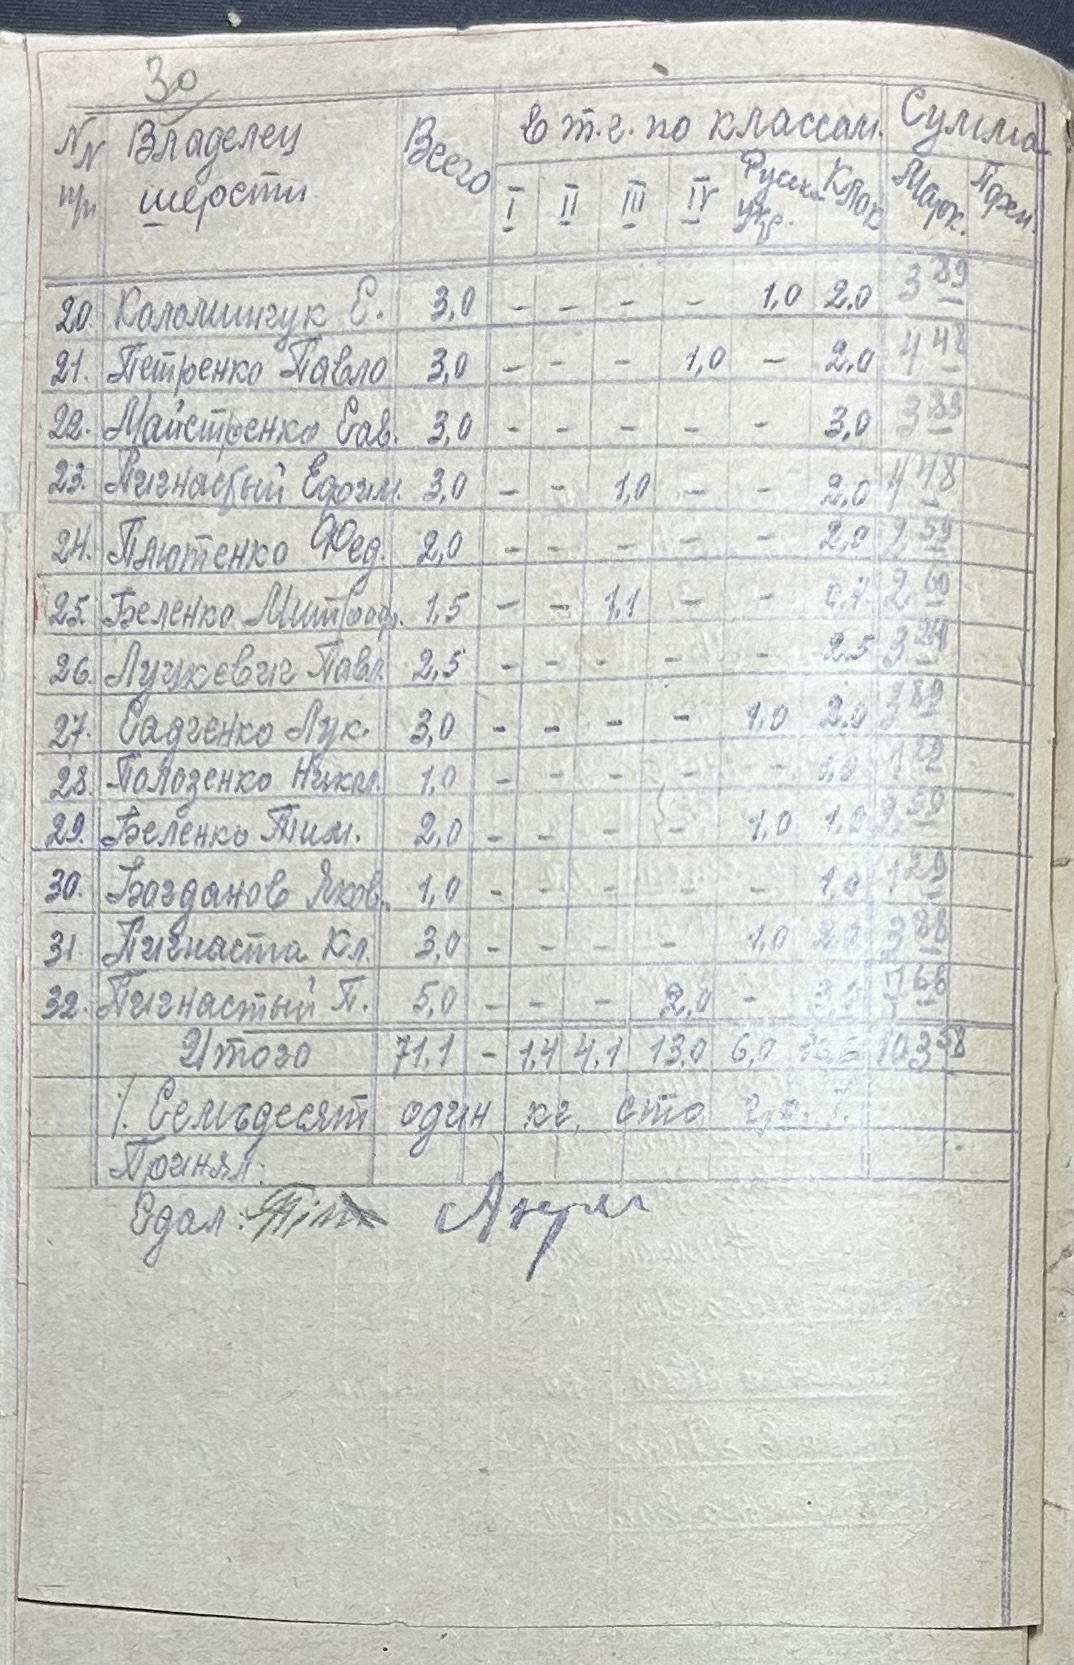 30
NN п/п Владелец шерсти Всего в т.г. по классам Сумма
I II III IV Русск. Клок Марк. Пфен.
20. Коломийчук Е. 3,0 - - - - 1,0 2,0 3 89
21. Петренко Павло 3,0 - - - 1,0 - 2,0 4 48
22. Майстренко Сав. 3,0 - - - - - 3,0 3 89
23. Пигнастый Ефим. 3,0 - - 1,0 - - 2,0 4 48
24. Плютенко Фед. 2,0 - - - - - 2,0 2 59
25. Беленко Митроф. 1,5 - - 1,1 - - 2
26. Луцкевич Павл. 2,5 - - - - - 2,5 3 24
27. Садченко Лук. 3,0 - - - - 1,0 2,0 3 89
28. Полозенко Никол. 1,0 - - - - - 1
29. Беленко Тим. 2,0 - - - - 1,0 1,0 2 59
30. Богданов Яков. 1,0 - - - - - 1,0 1 29
31 Пигнаста Кл. 3,0 - - - - 1,0 2,0 3 88
32. Пигнастый П. 5,0 - - - 2,0 - 3,0 7 68
Итого 71,1 - 1,4 4,1 13,0 6,0 103 58
/. Семьдесят один кг. сто гр. /.
Принял:
Сдал: